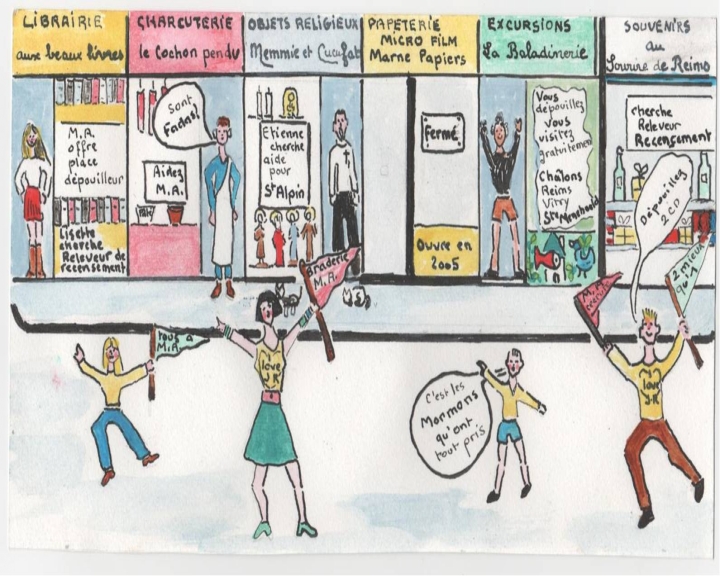 LIBRAIRIE
aux beaux livres
CHARCUTERIE
le Cochon pendu
OBJETS RELIGIEUX
Memmie et Cucufat
PAPETERIE
MICRO FILM
Marne Papiers
EXCURSIONS
La Baladinerie
SOUVENIRS
au
Sourire de Reims
M.R.
offre
place
dépouilleur
Lisette
cherche
Releveur de
recensement
Sont
Fadas!
Aidez
M.R.
Etienne
cherche
aide
pour
St Alpin
Fermé
Ouvre en
2005
Vous
dépouillez
Vous
visitez
gratuitement
Châlons
Reims
Vitry
Ste Menehould
cherche
Releveur
Recensement
Dépouillez
2 CD
Braderie
M.R.
tous à
M.R.
I love
J-R
C'est les
Mormons
qu'ont
tout pris
M.R.
2 mieux
qu'1
I
love
J-R